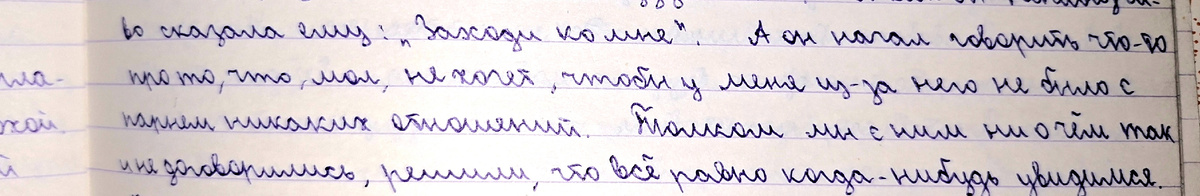 во сказала ему: „Заходи ко мне“. А он начал говорить что-то
про то, что, мол, не хочет, чтобы у меня из-за него не было с
парнем никаких отношений. Толком мы с ним ни о чём так
и не договорились, решили, что всё равно когда-нибудь увидимся.